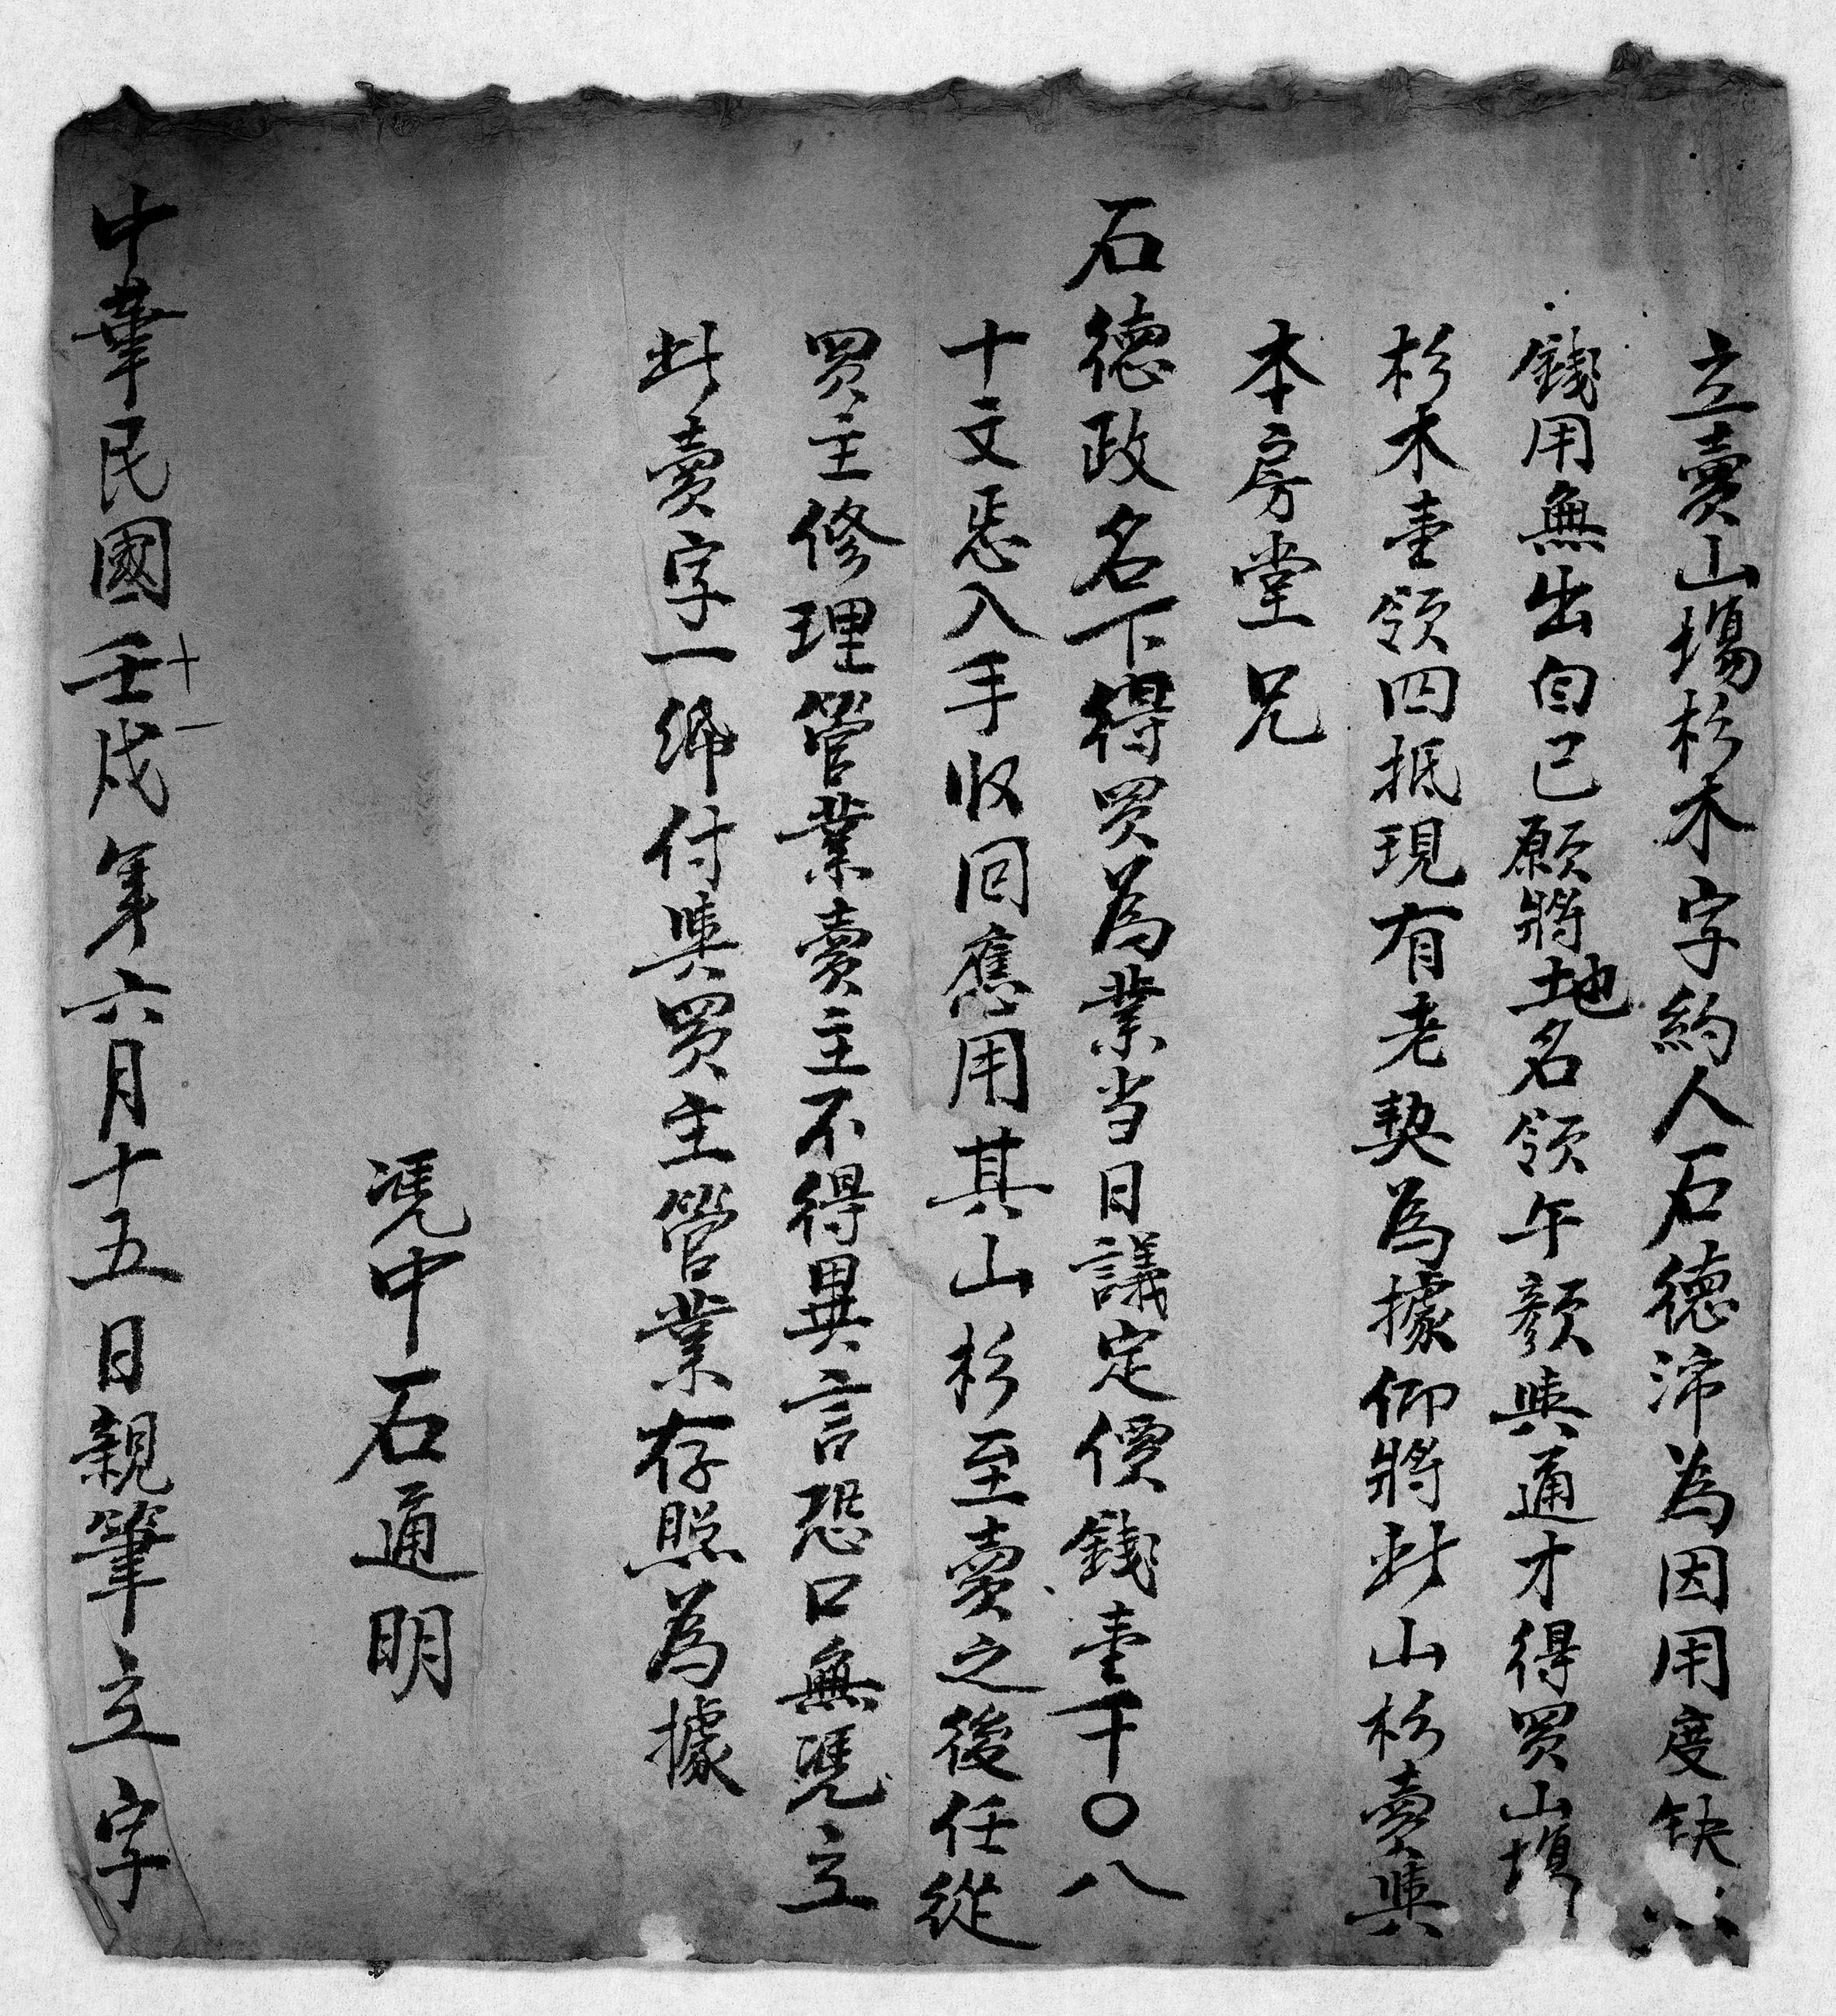 立賣山塲杉木字約人石德沛為因用度缺
錢用無出自己願將地名領午顏與通才得買山塲
杉木壹領四抵現有老契為據仰將此山杉賣與
本房堂兄
石德政名下得買為業当日議定價錢壹千〇八
十文恁入手收回應用其山杉至賣之後任從
買主修理管業賣主不得異言恐口無凴立
此賣字一紙付與買主管業存照為據
凴中石通明
中華民國十一壬戌年六月十五日親筆立字